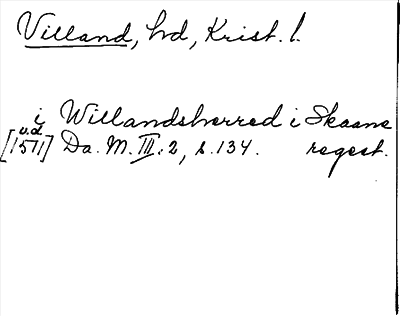 Villand, hd, Krist. l.
i Willandsherred i Skaane
u.d.
[1571] Da. M. III: 2, s. 134. regest.